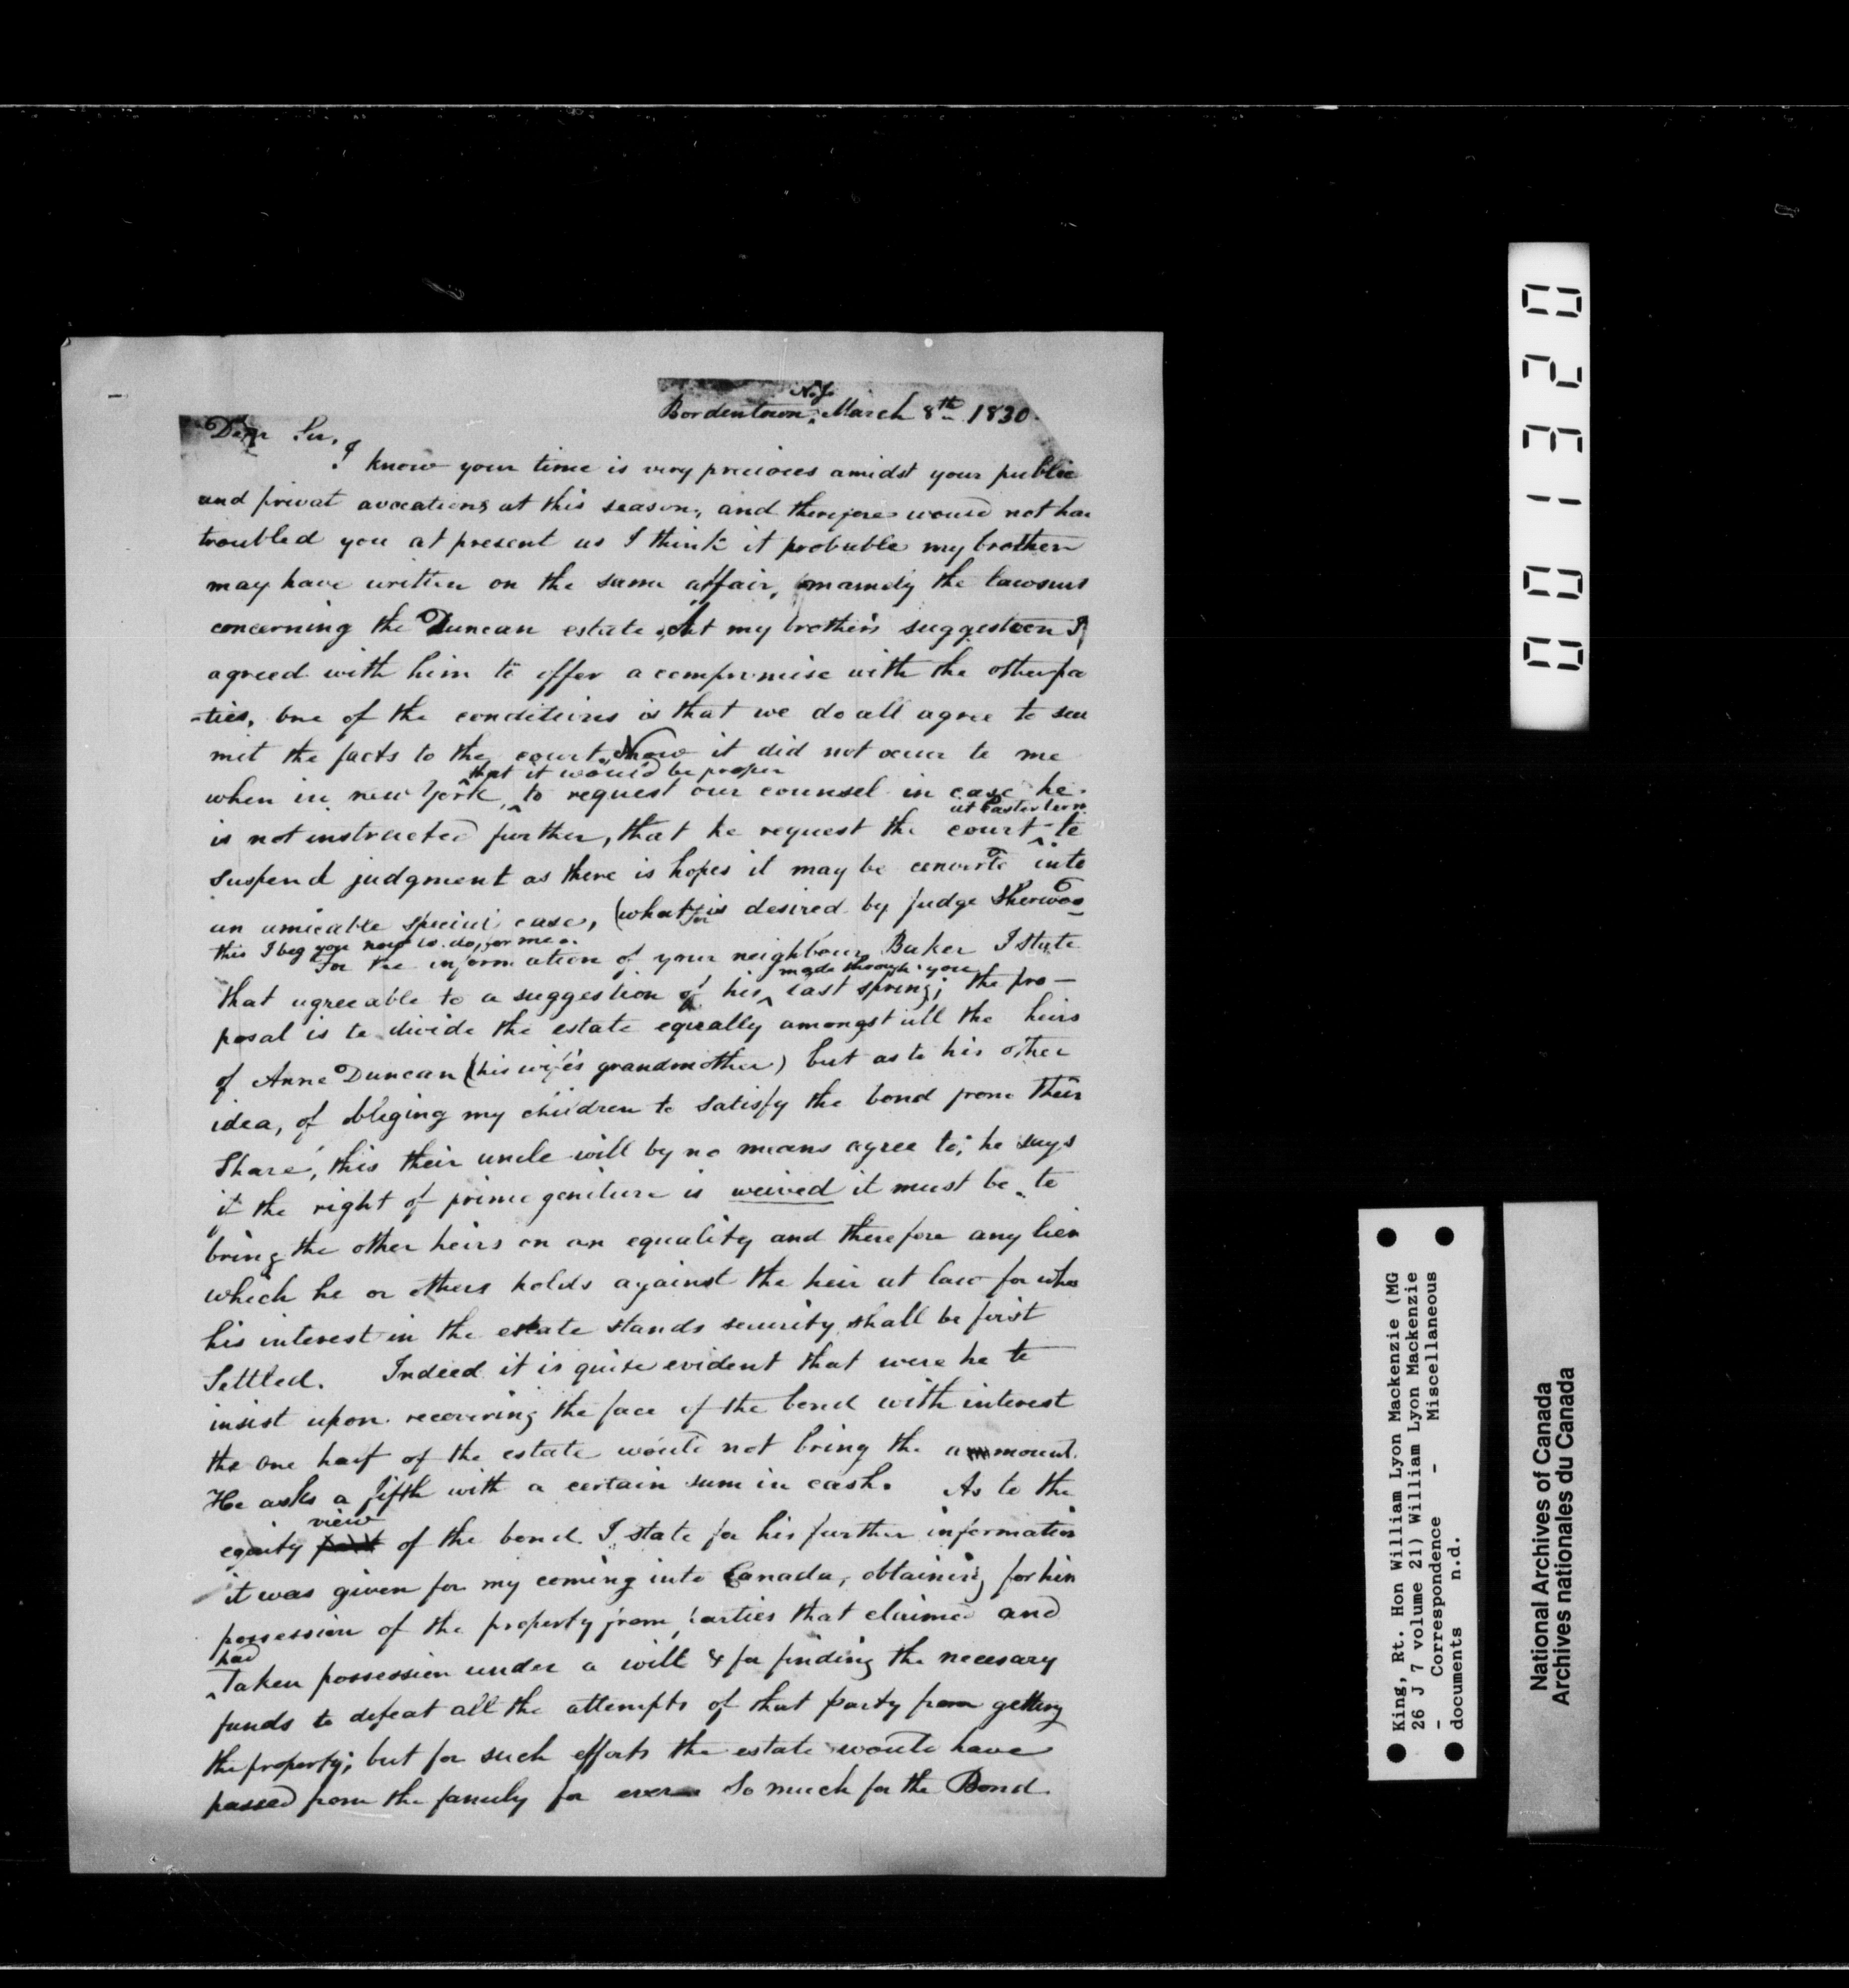 N.J.
Bordentown, March 8th 1830.
Dear Sir,
I know your time is very precious amidst your public
and privat avocations at this season, and therefore would not hav
troubled you at present as I think it probable my brother
may have written on the same affair, namely the lawsuit
concerning the Duncan estate. At my brother's suggestion I
agreed with him to offer a compromise with the other par
-ties, one of the conditions is that we do all agree to
mit the facts to the court. Now it did not occur to me
that it would be proper
when in new York, to request our counsel in case he
at Easter term
is not instructed further, that he request the court to
suspend judgment as there is hopes it may be converted into
an amicable special case, (what is desired by judge Sherwood
this I beg you now to do, for me.
For the information of your neighbour Baker I state
made through you
that agreeable to a suggestion of his last spring; the pro-
posal is to divide the estate equally amongst all the heirs
of Anne Duncan (his wife's grandmother) but as to his other
idea, of obliging my children to satisfy the bond from their
Share, this their uncle will by no means agree to; he says
if the right of primogeniture is weived it must be to
bring the other heirs on an equality and therefore any lien
which he or others holds against the heir at law for whc
his interest in the estate stands security shall be first
Settled. Indeed it is quite evident that were he to
insist upon recovering the face of the bond with interest
the one half of the estate would not bring the ammount.
He asks a fifth with a certain sum in cash. As to the
view
equity of the bond I state for his further information
it was given for my coming into Canada, obtaining for him
possession of the property from parties that claimed and
had
Taken possession under a will & for finding the necesary
funds to defeat all the attempts of that party from getting
the property; but for such efforts the estate would have
passed from the family for ever So much for the Bond.
001320
King, Rt. Hon William Lyon Mackenzie (MG
26 J 7 volume 21) William Lyon Mackenzie
- Correspondence - Miscellaneous
documents n.d.
National Archives of Canada
Archives nationales du Canada